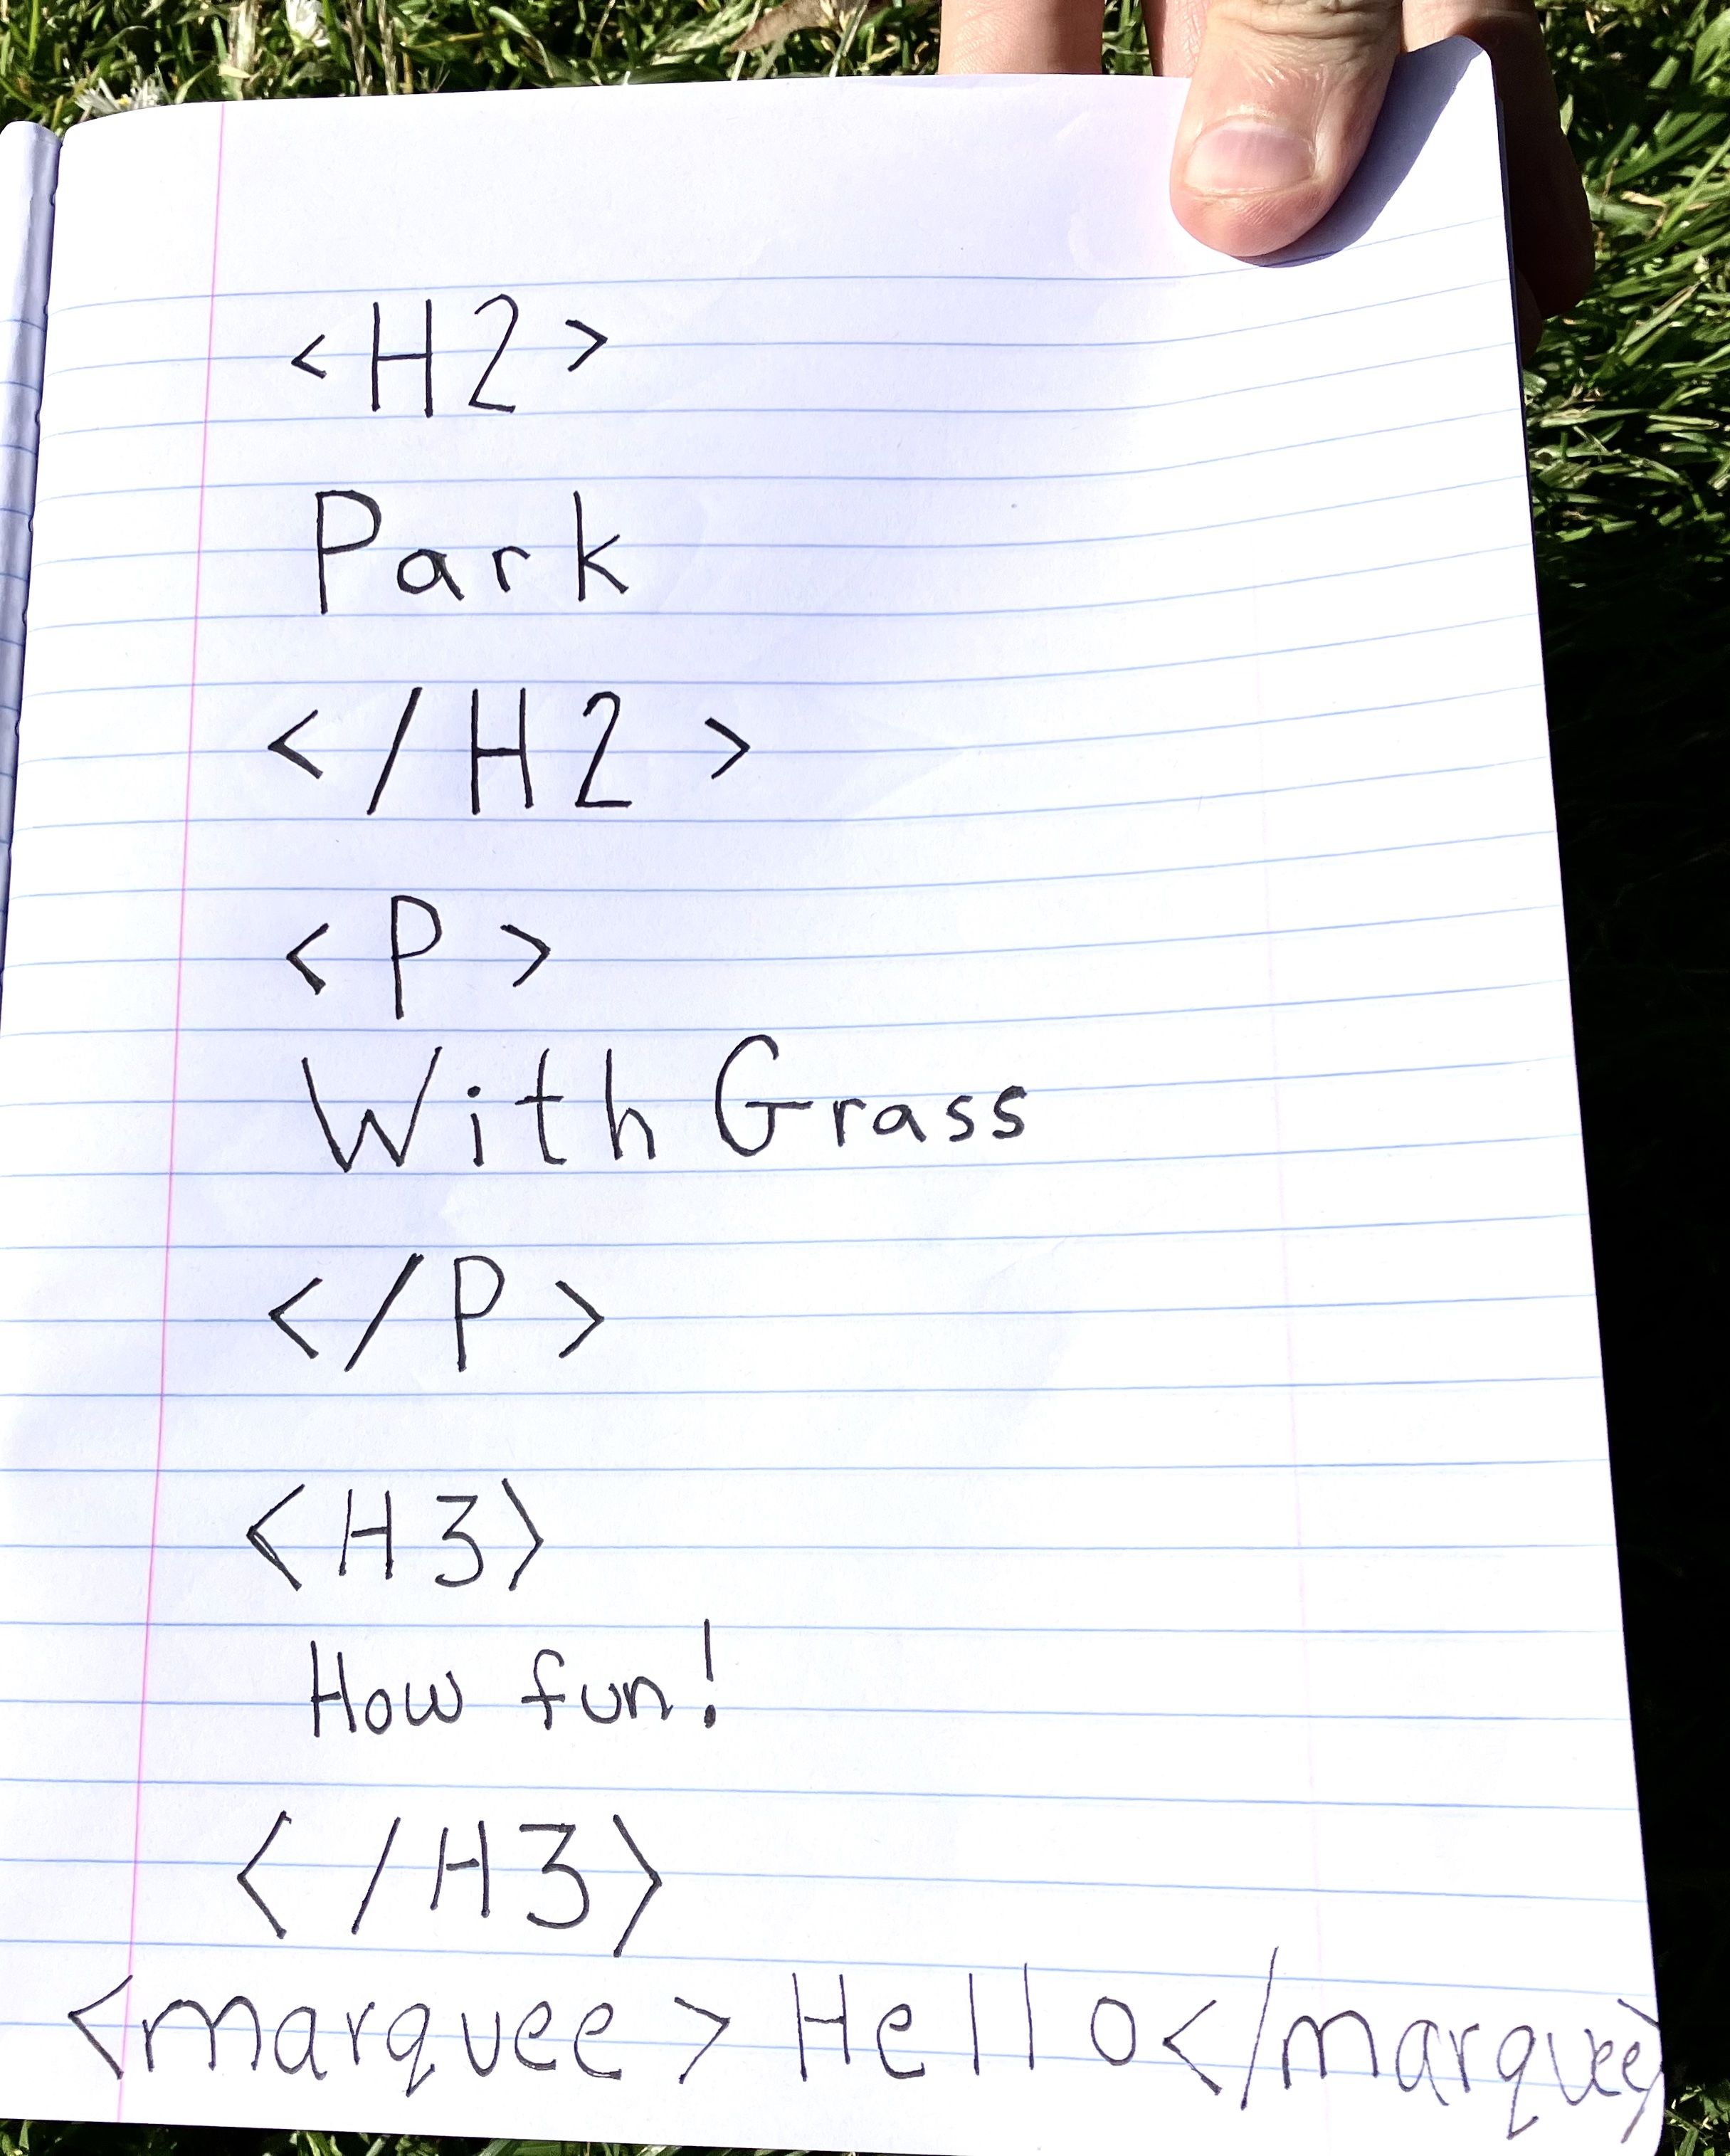 <H2>
Park
</H2>
<P>
With Grass
</P>
<H3>
How fun!
</H3>
<marquee> Hello</marquee>